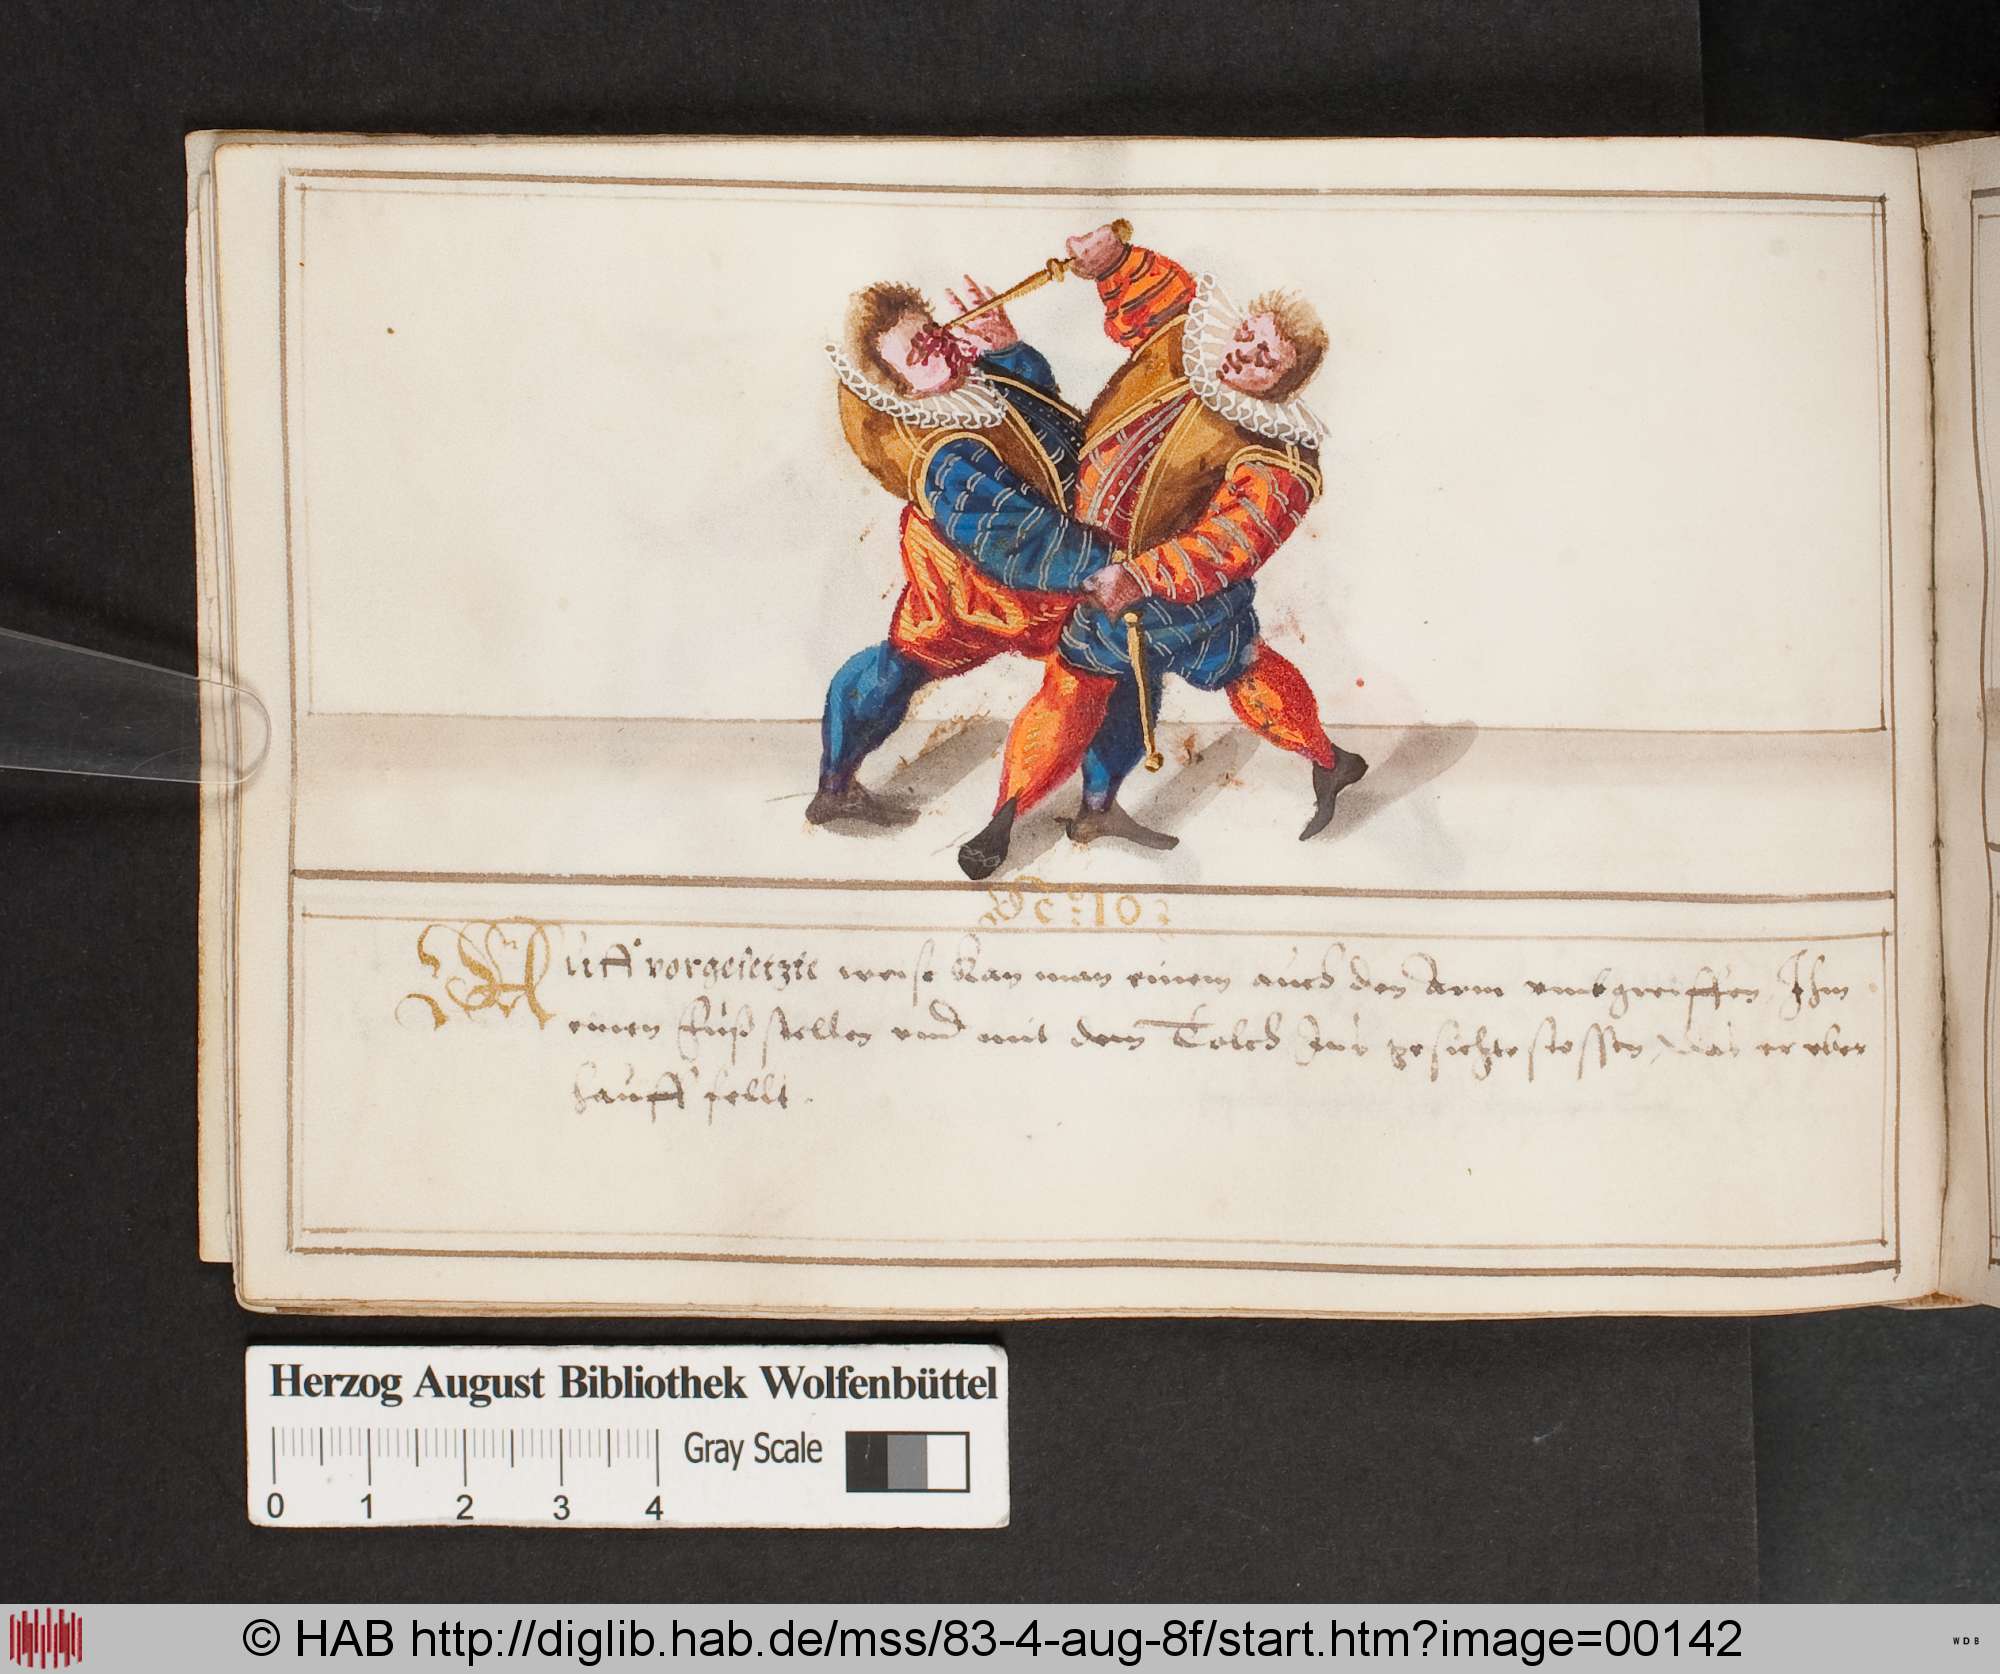 No: 10
Auff vorgesetzte weise kan man einem auch den Arm vmbgreiffen, Ihm
einen fuß stellen vnd mit dem Tolch Ins gesichte stossen, das er vber
hauff fellt.
Herzog August Bibliothek Wolfenbüttel
Gray Scale
0 1 2 3 4
© HAB http://diglib.hab.de/mss/83-4-aug-8f/start.htm?image=00142
WDB